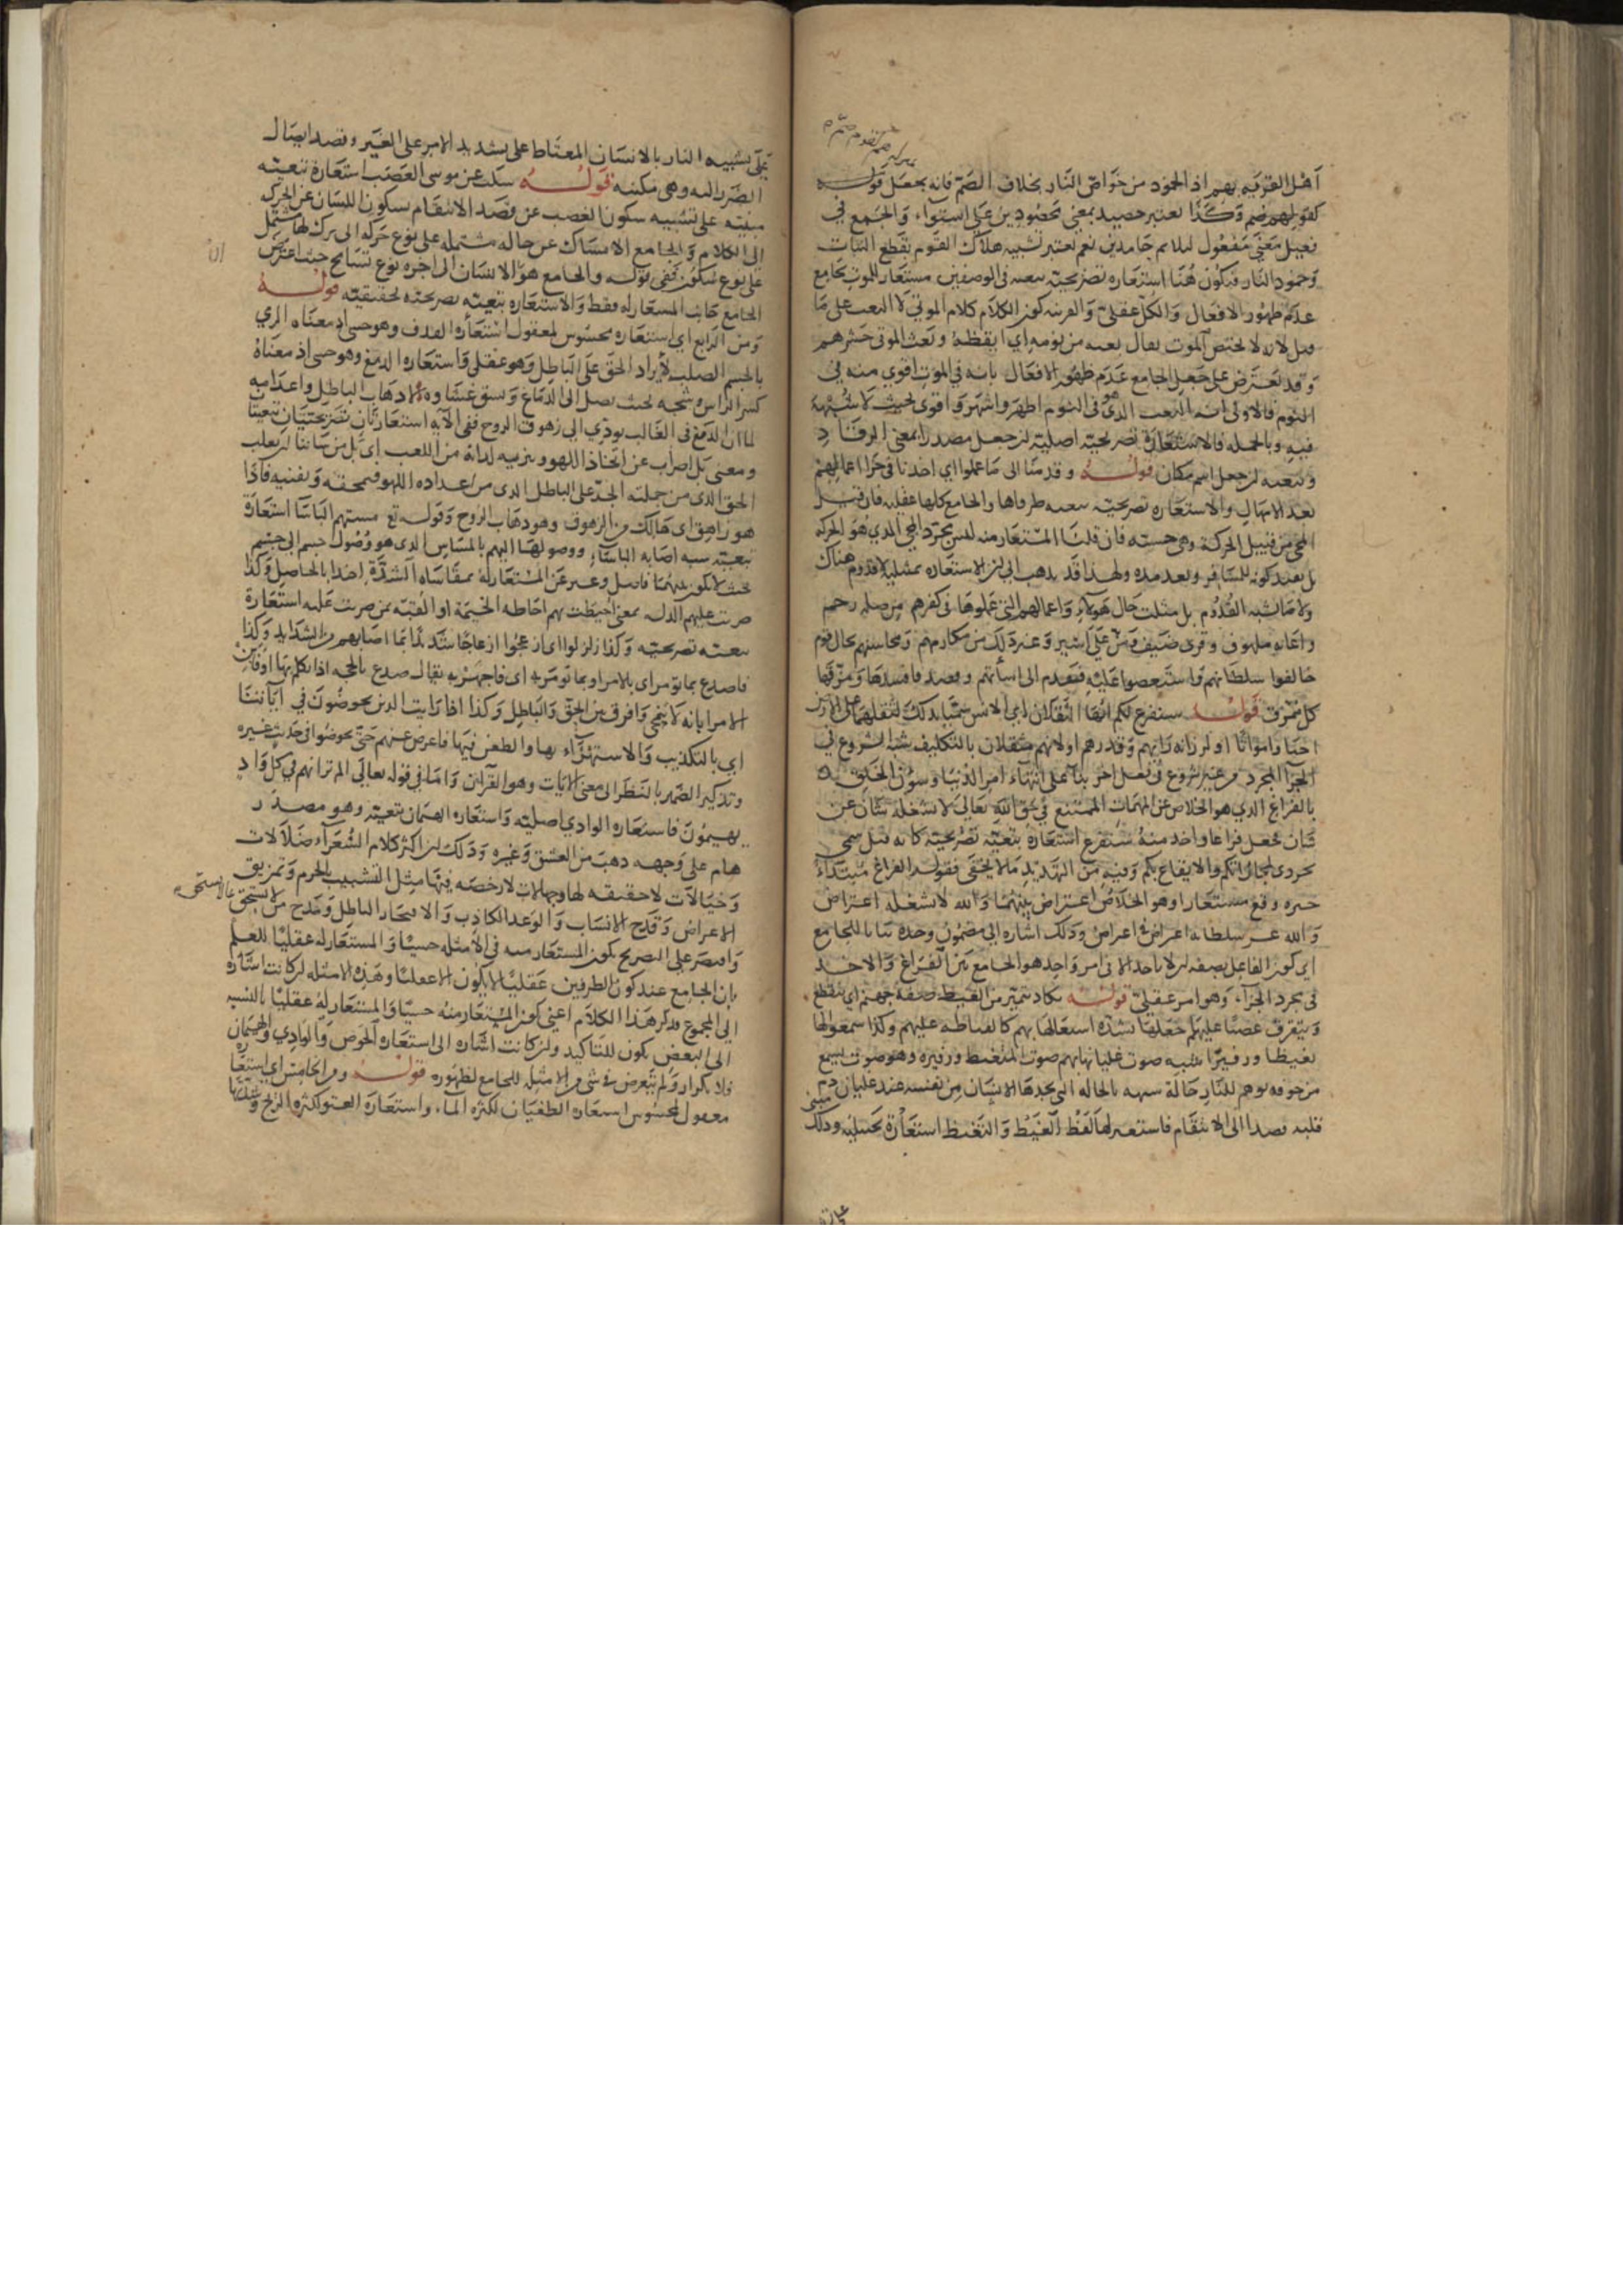 اهل القرية بهم اذ الخمود من خواص النار بخلاف الصم فانه يجعل قوله
كقولهم صم وكذا يعتبر حصيد بمعنى محصودين على استواء والجمع في
فعيل معنى مفعول ليلائم خامدين نعم يعتبر تشبيه هلاك القوم بقطع النبات
وخمود النار فيكون هنا استعارة تصريحية تبعية في الوصفين مستعار للموت بجامع
عدم ظهور الافعال والكل عقلي والقرينة كون الكلام كلام الموتى لا البعث على ما
قيل لانه لا يختص الموت يقال بعثه من نومه اي ايقظه وبعث الموتى حشرهم
وقد يعترض على جعل الجامع عدم ظهور الافعال بانه في الموت اقوى منه في
النوم فالاولى انه البعث الذي هو في النوم اظهر واشهر واقوى بحيث لا شبهة
فيه وبالجملة فالاستعارة تصريحية اصلية ان جعل مصدرا بمعنى الرقاد
وتبعية ان جعل اسم مكان قوله وقدمنا الى ما عملوا اي اخذنا في جزاء اعمالهم
بعد الامهال والاستعارة تصريحية تبعية طرفاها والجامع كلها عقلية فان قيل
المجي من قبيل الحركة وهي حسية فان قلنا المستعار منه ليس مجرد المجي الذي هو الحركة
بل بقيد كونه للمسافر وبعد مدة ولهذا قد يذهب الى ان الاستعارة تمثيلية لا قدوم هناك
ولا ما يشبه القدوم بل مثلت حال هولاء واعمالهم التي عملوها في كفرهم من صلة رحم
واغاثة ملهوف وقرى ضيف ومن على اسير وغير ذلك من مكارمهم ومحاسنهم بحال قوم
خالفوا سلطانهم واستعصوا عليه فقدم الى اسبابهم وقصد فافسدها ومزقها
كل ممزق قوله سنفرغ لكم ايها الثقلان اي الانس سميا بذلك لثقلهما على الارض
احيا وامواتا او لرزانة رايهم وقدرهم او لانهم مثقلان بالتكليف شبه الشروع في
الجزاء المجرد عن غير شروع في فعل اخر بناء على انتهاء امر الدنيا وشؤن الخلق
بالفراغ الذي هو الخلاص عن المهمات الممتنع في حق الله تعالى لا يشغله شان عن
شان فجعل فراغا واخذ منه سنفرغ استعارة تبعية تصريحية كانه قيل
لمجازاتكم والايقاع بكم وفيه من التهديد ما لا يخفى فقوله الفراغ مبتداء
خبره وقع مستعارا وهو الخلاص اعتراض بينهما والله لا يشغله اعتراض
والله عز سلطانه اعتراض في اعتراض وذلك اشارة الى مضمون وحده بيانا للجامع
اي كون الفاعل بصفة ان لا ياخذ الا في امر واحد هو الجامع بين الفراغ والاخذ
في مجرد الجزاء وهو امر عقلي قوله تكاد تميز من الغيظ صفة جهنم اي تتقطع
وتتفرق غضبا عليهم جعلها لشدة اشتعالها بهم كالمغتاظة عليهم وكذا سمعوا لها
تغيظا وزفيرا شبه صوت غليانها بهم صوت المتغيظ وزفيره وهو صوت يسمع
من جوفه توهم للنار حالة شبيهة بالحالة التي يجدها الانسان من نفسه عند غليان دم
قلبه قصدا الى الانتقام فاستعير لها لفظ الغيظ والتغيظ استعارة تخييلية وذلك مبني
على تشبيه النار بالانسان المغتاظ على شديد الامر على الغير وقصد ايصال
الضرر اليه وهي مكنية قوله سكت عن موسى الغضب استعارة تبعية
مبنية على تشبيه سكون الغضب عن قصد الانتقام بسكون اللسان عن الحركة
الى الكلام والجامع الامساك عن حالة مشتملة على نوع حركة الى ترك لها يشتمل
على نوع سكون ففي قوله والجامع هو الانسان الى اخره نوع تسامح حيث اعترض
الجامع جانب المستعار له فقط والاستعارة تبعية تصريحية تحقيقية قوله
ومن الرابع اي استعارة محسوس لمعقول استعارة القذف وهو حسي اذ معناه الرمي
بالجسم الصلب لايراد الحق على الباطل وهو عقلي واستعارة الدمغ وهو حسي اذ معناه
كسر الراس شجة بحيث يصل الى الدماغ ويشق غشاوه لاذهاب الباطل واعدامه
لما ان الدمغ في الغالب يودي الى زهوق الروح ففي الآية استعارتان تصريحيتان تبعيتان
ومعنى بل اضراب عن اتخاذ اللهو وتنزيه لذاته من اللعب اي بل من شاننا ان يغلب
الحق الذي من جملته الجد على الباطل الذي من اعداده اللهو فيمحقه ويفنيه فاذا
هو زاهق اي هالك من الزهوق وهو ذهاب الروح وقوله تع مستهم الباساء استعارة
تبعية شبه اصابة الباساء ووصولها اليهم بالمساس الذي هو وصول جسم الى جسم
بحيث لا يكون بينهما فاصل وعبر عن المستعار له بمقاساة الشدة اخذا بالحاصل وكذا
ضربت عليهم الذلة بمعنى احيطت بهم احاطة الخيمة او القبة بمن ضربت عليه استعارة
تبعية تصريحية وكذا زلزلوا اي ازعجوا ازعاجا شديدا بما اصابهم من الشدايد وكذا
فاصدع بما تومر اي بالامر او بما تومر به اي فاجهر به يقال صدع بالحجة اذا تكلم بها او
الامر ابانة لا تنمحي وافرق بين الحق والباطل وكذا اذا رايت الذين يخوضون في آياتنا
اي بالتكذيب والاستهزاء بها والطعن فيها فاعرض عنهم حتى يخوضوا في حديث غيره
وتذكير الضمير بالنظر الى معنى الايات وهو القرآن واما في قوله تعالى الم تر انهم في كل واد
يهيمون فاستعارة الوادي اصلية واستعارة الهيمان تبعية وهو مصدر
هام على وجهه ذهب من العشق وغيره وذلك لان اكثر كلام الشعراء ضلالات
وخيالات لا حقيقة لها وجهالات لا رخصة فيها مثل التشبيب بالحرم وتمزيق
الاعراض وقدح الانساب والوعد الكاذب والافتخار الباطل ومدح من لا يستحق
واقتصر على التصريح بكون المستعار منه في الامثلة حسيا والمستعار له عقليا للعلم
بان الجامع عند كون الطرفين عقليا لا يكون الا عقليا وهذه الامثلة ان كانت اشارة
الى المجموع فذكر هذا الكلام اعني كون المستعار منه حسيا والمستعار له عقليا بالنسبة
الى البعض يكون للتاكيد وان كانت اشارة الى استعارة الخوض والوادي والهيمان
فلا تكرار ولم يتعرض في شي من الامثلة للجامع لظهوره قوله ومن الخامس اي استعارة
معقول لمحسوس استعارة الطغيان لكثرة الماء واستعارة العتو لكثرة الريح